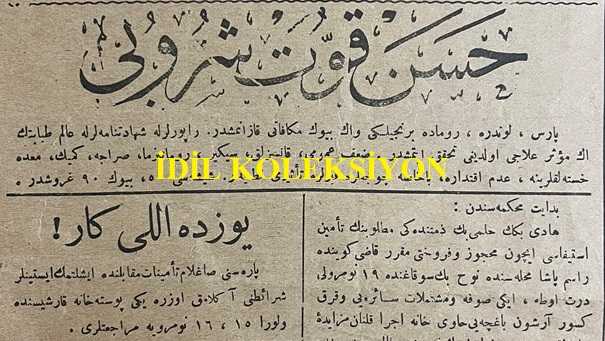 حسن قوت شروبی
پارس ، لوندره ، روماده برنجیلكی واك بیوك مكافاتی قازانمشدر . راپورلرله شهادتنامه‌لرله عالم طبابتك
اك مؤثر علاجی اولدیغی تحقق ایتمشدر . ضعف عمومی ، قانسزلق ، سیكیر ، روماتیزما ، صراجه ، كمیك ، معده
خسته‌لقلرینه ، عدم اقتداره ،
بیوك ٩٠ غروشدر .
İDİL KOLEKSİYON
بدایت محكمه‌سندن :
هادی بكك حلمی بك ذمتنده‌كی مطلوبنك تأمین
استیفاسی ایچون محجوز وفروختی مقرر قاضی كوینده
راسم پاشا محله‌سنده نوح بك سوقاغنده ١٩ نومرولی
درت اوطه ، ایكی صوفه ومشتملات سائره‌یی وفرق
كسور آرشون باغچه‌یی حاوی خانه اجرا قلنان مزایده‌
یوزده اللی كار !
پاره‌سنی صاغلام تأمینات مقابلنده ایشلتمك ایستینلر
شرائطی آكلامق اوزره یكی پوسته‌خانه قارشیسنده
ولورا ١٥ ، ١٦ نومرویه مراجعتلری .